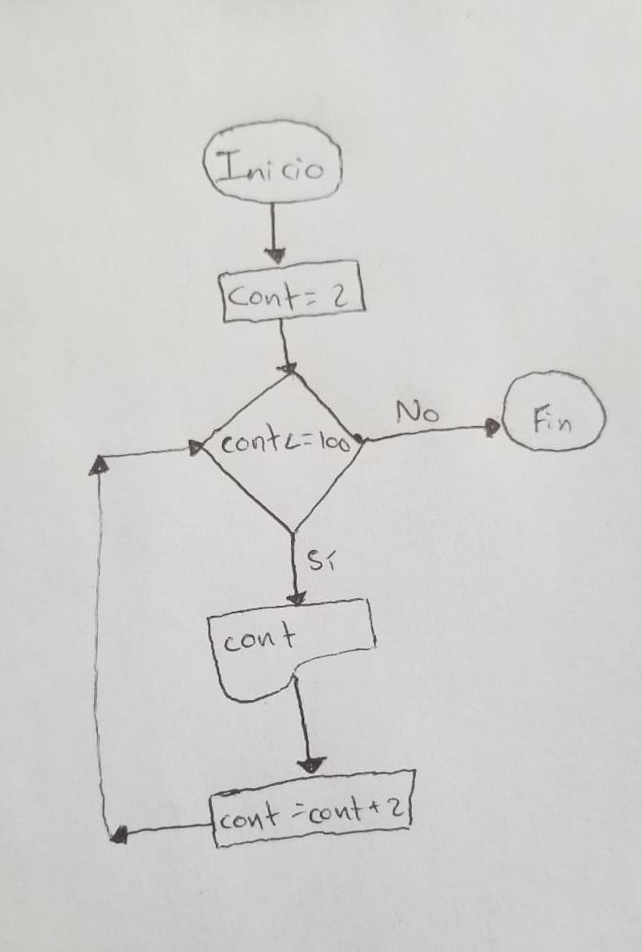 Inicio
cont = 2
cont <= 100
No
Fin
Sí
cont
cont = cont + 2